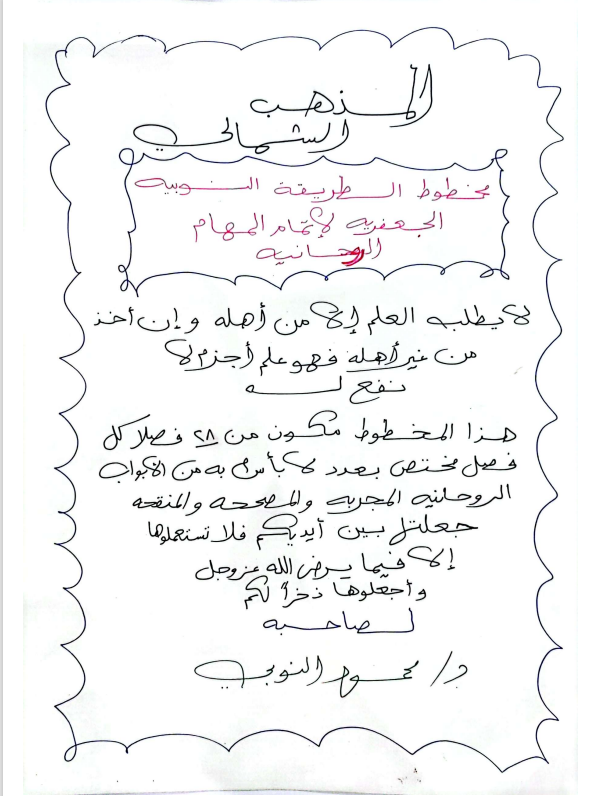 المذهب
الشمالي
مخطوط الطريقة النوبيه
الجعفريه لإتمام المهام
الروحانيه
لا يطلب العلم إلا من أهله وإن أخذ
من غير أهله فهو علم أجزم لا
نفع له
هذا المخطوط مكون من ٢٨ فصلا كل
فصل مختص بعدد لا بأس به من الأبواب
الروحانيه المجربه والمصححه والمنقحه
جعلتها بين أيديكم فلا تستعملوها
إلا فيما يرضى الله عز وجل
واجعلوها ذخرا لكم
لصاحبه
د/ محمود النوبي